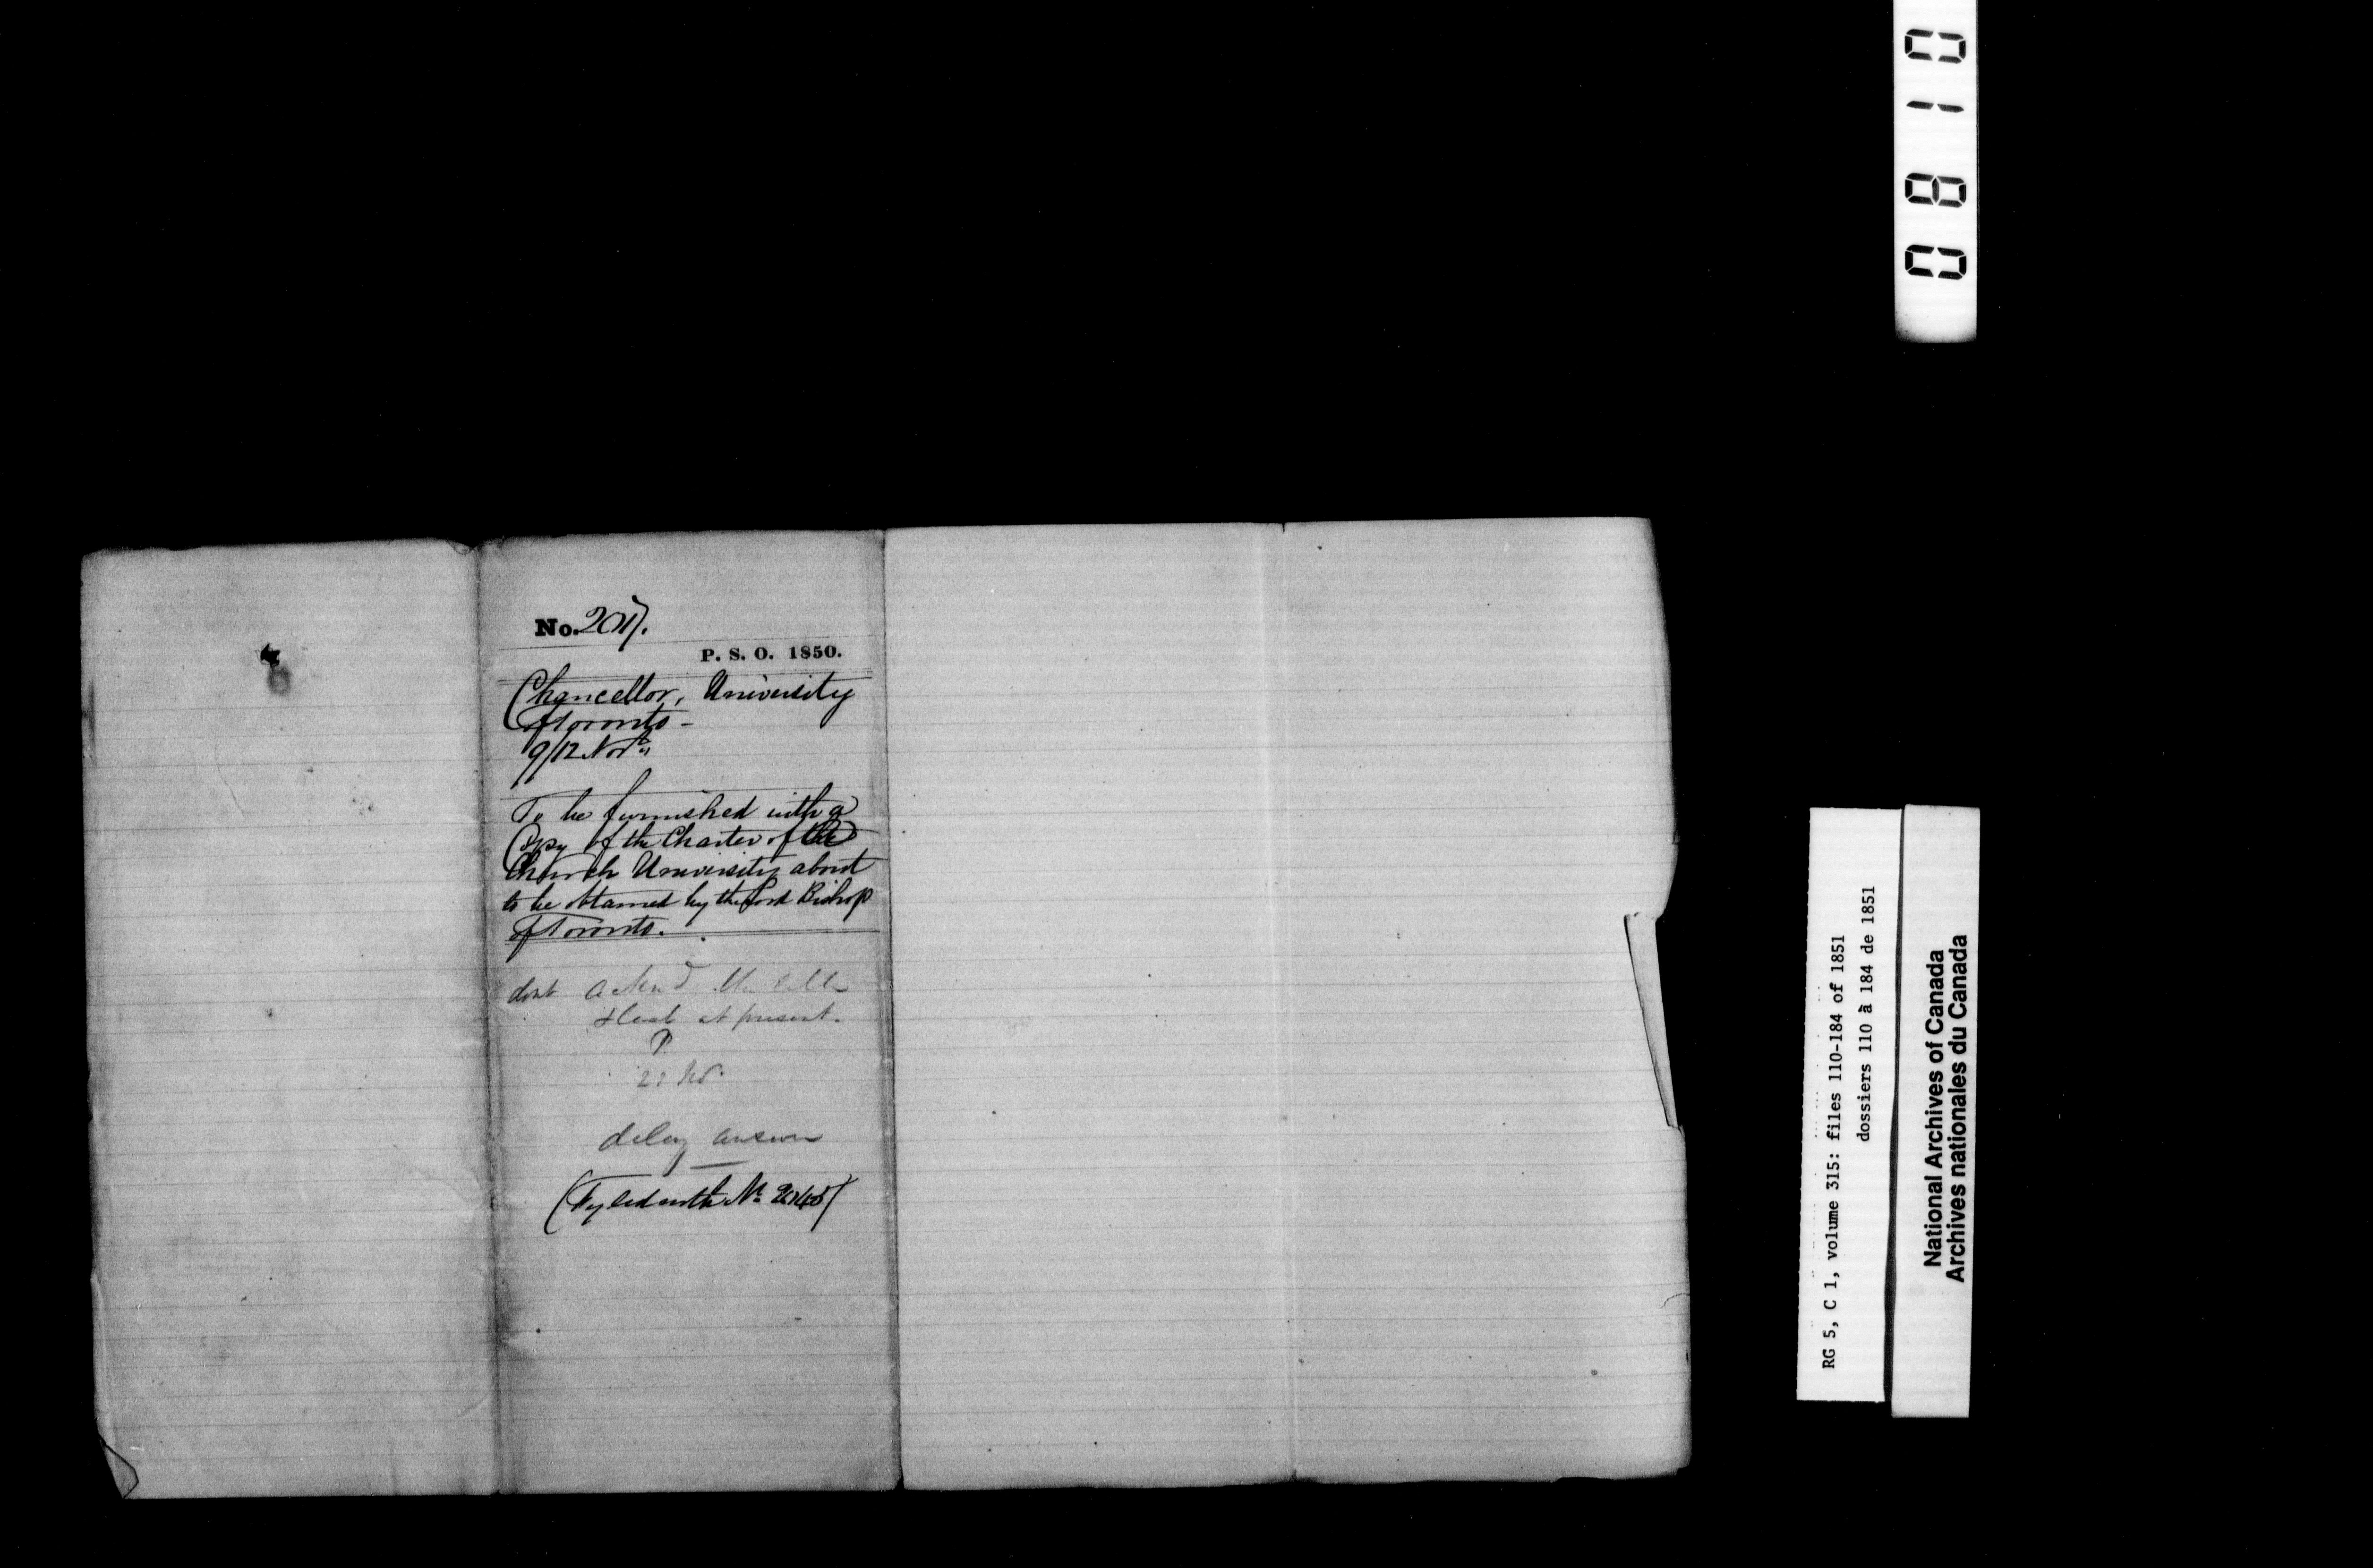 No. 2017.
P. S. O. 1850.
Chancellor, University
of Toronto -
9/12 Novr
To be furnished with a
Copy of the Charter of the
Church University about
to be obtained by the Lord Bishop
of Toronto.
dont
at present.
P.
delay answer
(Fyled with No
0810
RG 5, C 1, volume 315: files 110-184 of 1851
dossiers 110 à 184 de 1851
National Archives of Canada
Archives nationales du Canada